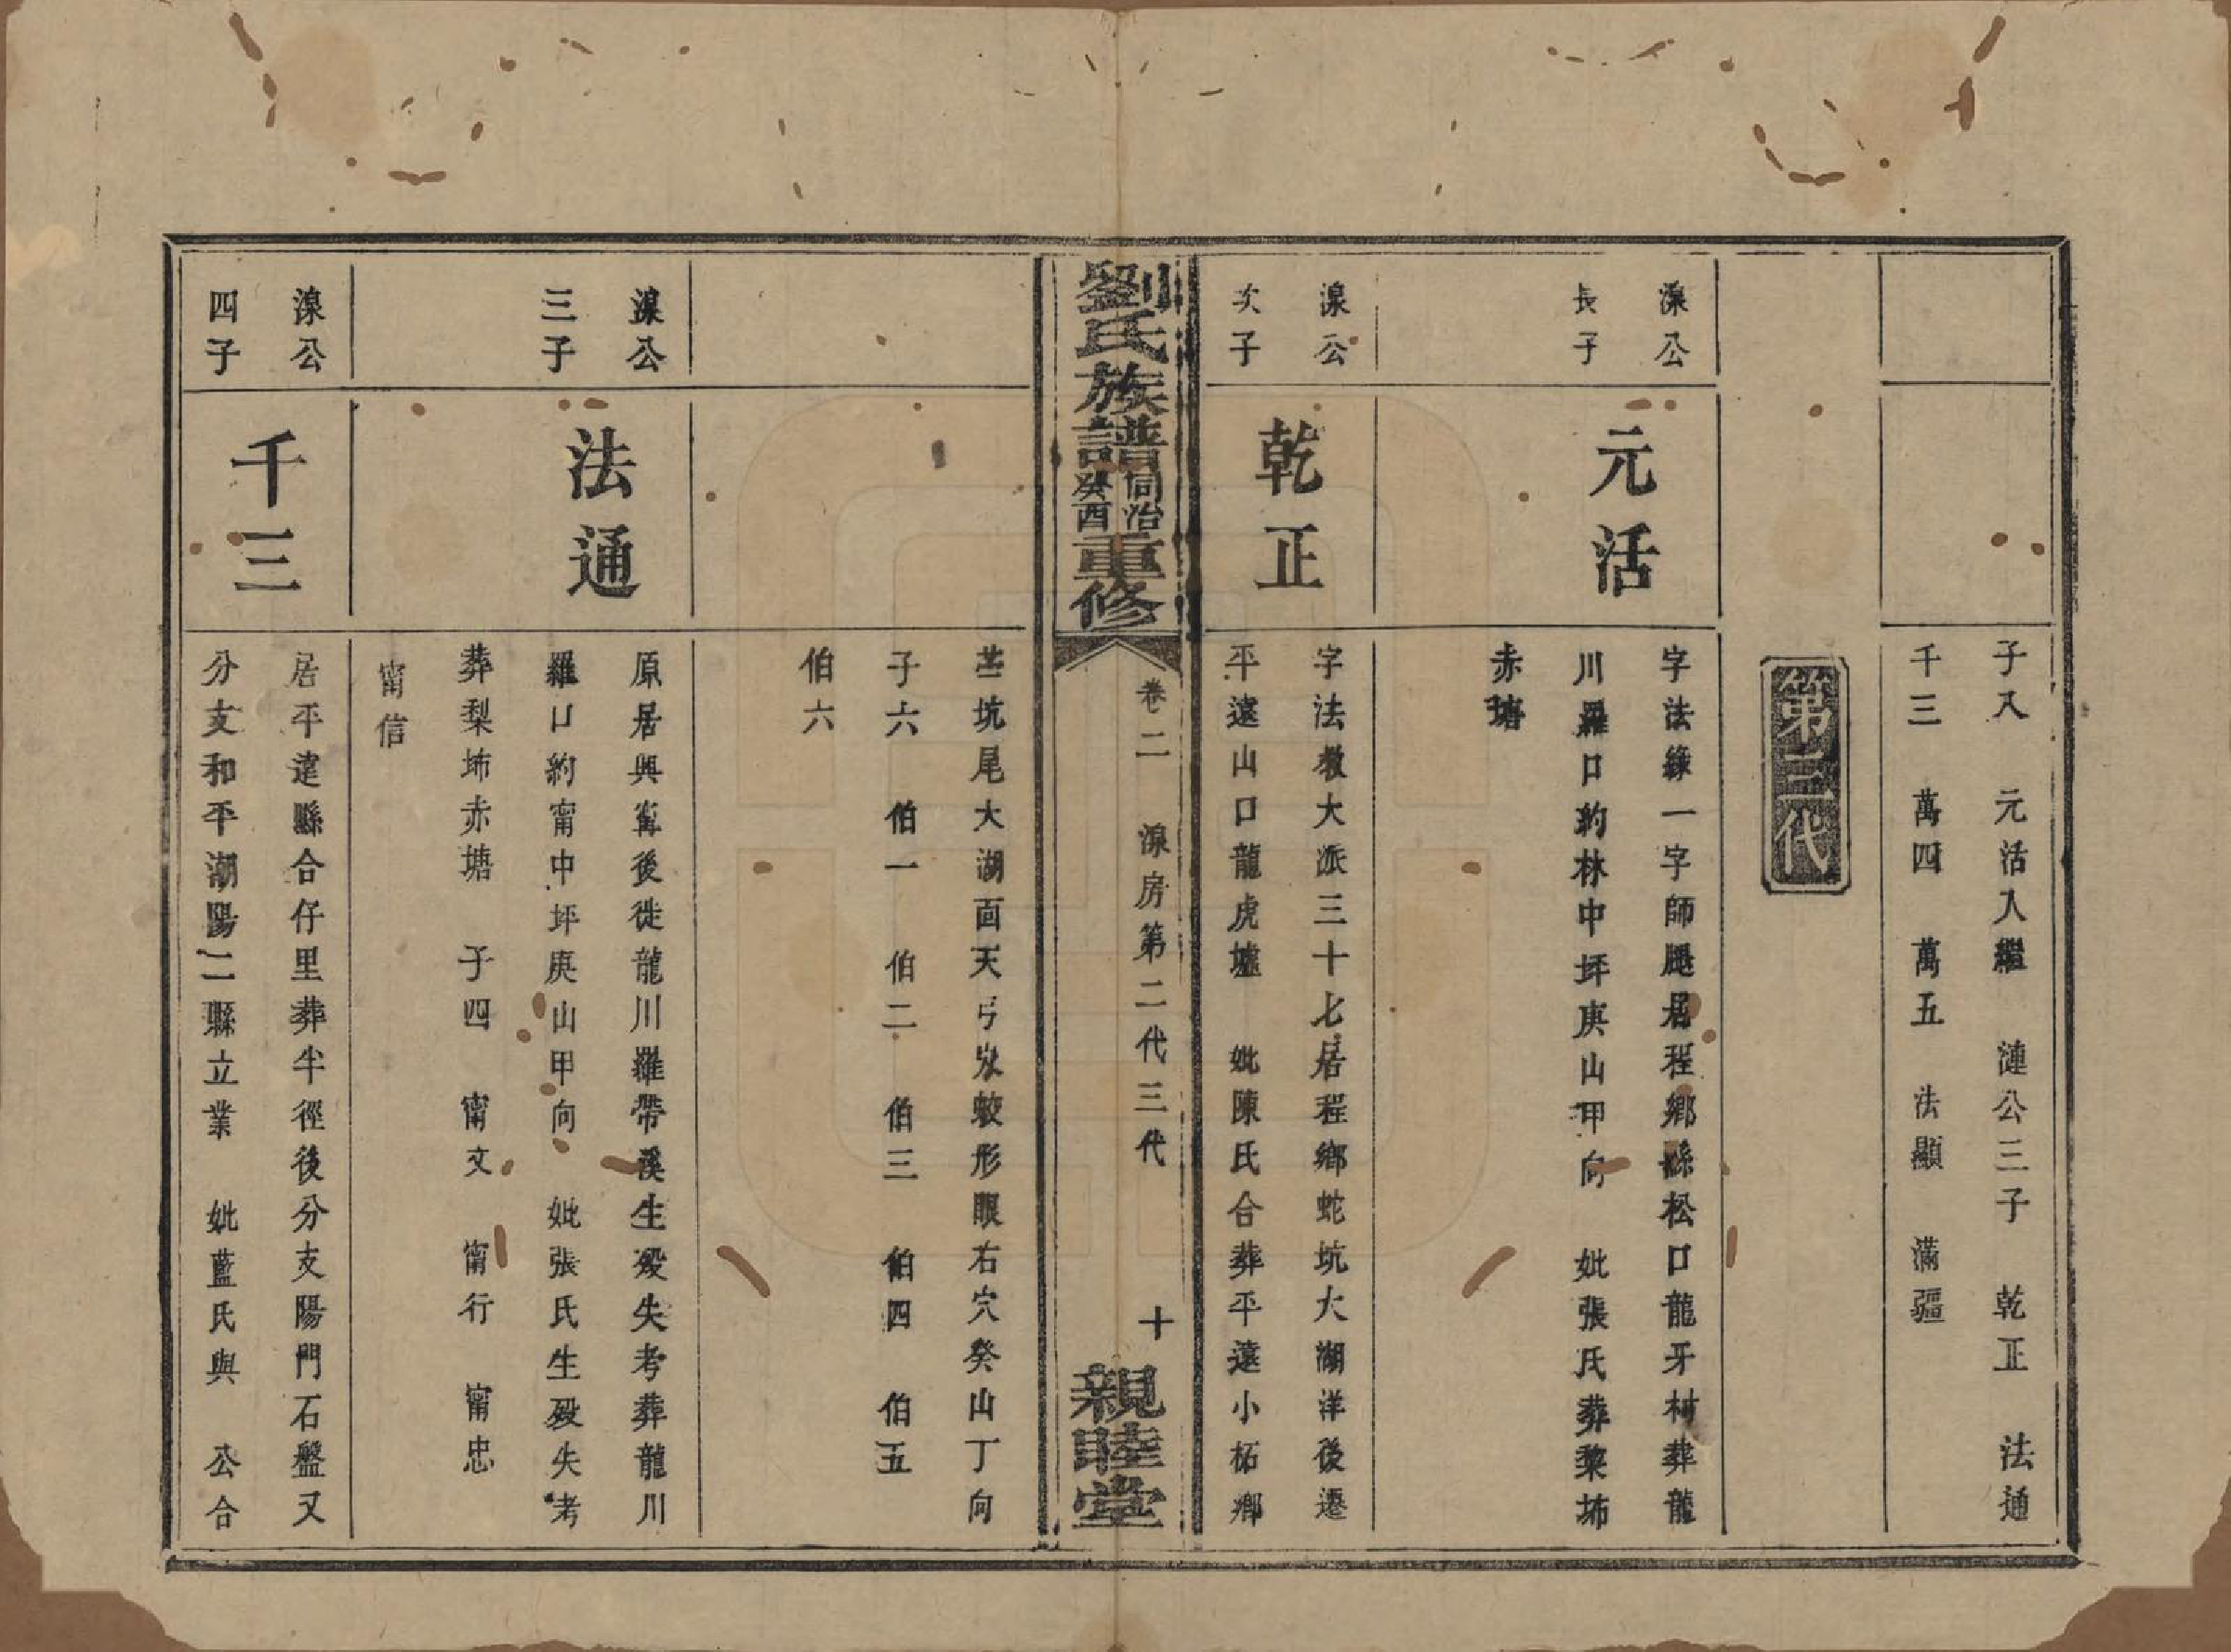 子八　元活入繼　漣公三子　乾正　法通
千三　萬四　萬五　法顯　滿疆
第三代
淥公
長子
元活
字法錄一字師颺居程鄉縣松口龍牙村葬龍
川羅口約林中坪庚山甲向　妣張氏葬黎坳
赤塘
淥公
次子
乾正
字法教大派三十七居程鄉蛇坑大湖洋後遷
平遠山口龍虎墟　妣陳氏合葬平遠小柘鄉
劉氏族譜同治癸酉重修
卷二　淥房第二代三代　十
親睦堂
坑尾大湖面天弓蛟形眼右穴癸山丁向
子六　伯一　伯二　伯三　伯四　伯五
伯六
淥公
三子
法通
原居興甯後徙龍川羅帶溪生歿失考葬龍川
羅口約甯中坪庚山甲向　妣張氏生歿失考
葬梨坳赤塘　子四　甯文　甯行　甯忠
甯信
淥公
四子
千三
居平遠縣合仔里葬半徑後分支陽門石盤又
分支和平潮陽二縣立業　妣藍氏與　公合